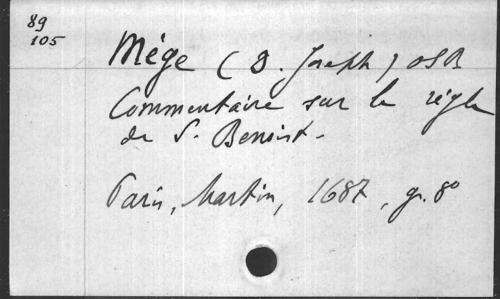 89
105
Mége (D. Joseph) OSB
Commentaire sur la règle
de S. Benoist.
Paris, Martin, 1687, gr. 8°